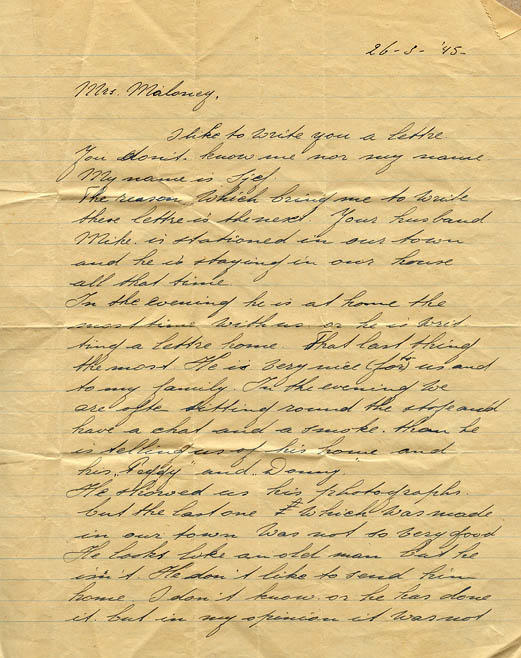 26-3-'45-
Mrs. Maloney,
I like to write you a lettre
You don't know me nor my name
My name is Sjef.
The reason, which bring me to write
these lettre is thenext Your husband
Mike. is stationed in our town
and he is staying in our house
all that time.
In the evening he is at home the
most time with us or he is writ
ting a lettre home. That last thing
the most. He is very nice (for to us and
to my family. In the evening we
are often sitting round the stofe and
have a chat and a smoke. than he
is telling us of his home and
his „Peggy" and „Donny"
He showed us his photographs.
but the last one which was made
in our town was not so very good
He looks like an old man but he
isn't. He don't like to send him
home. I don't know or he has done
it. but in my opinion it was not